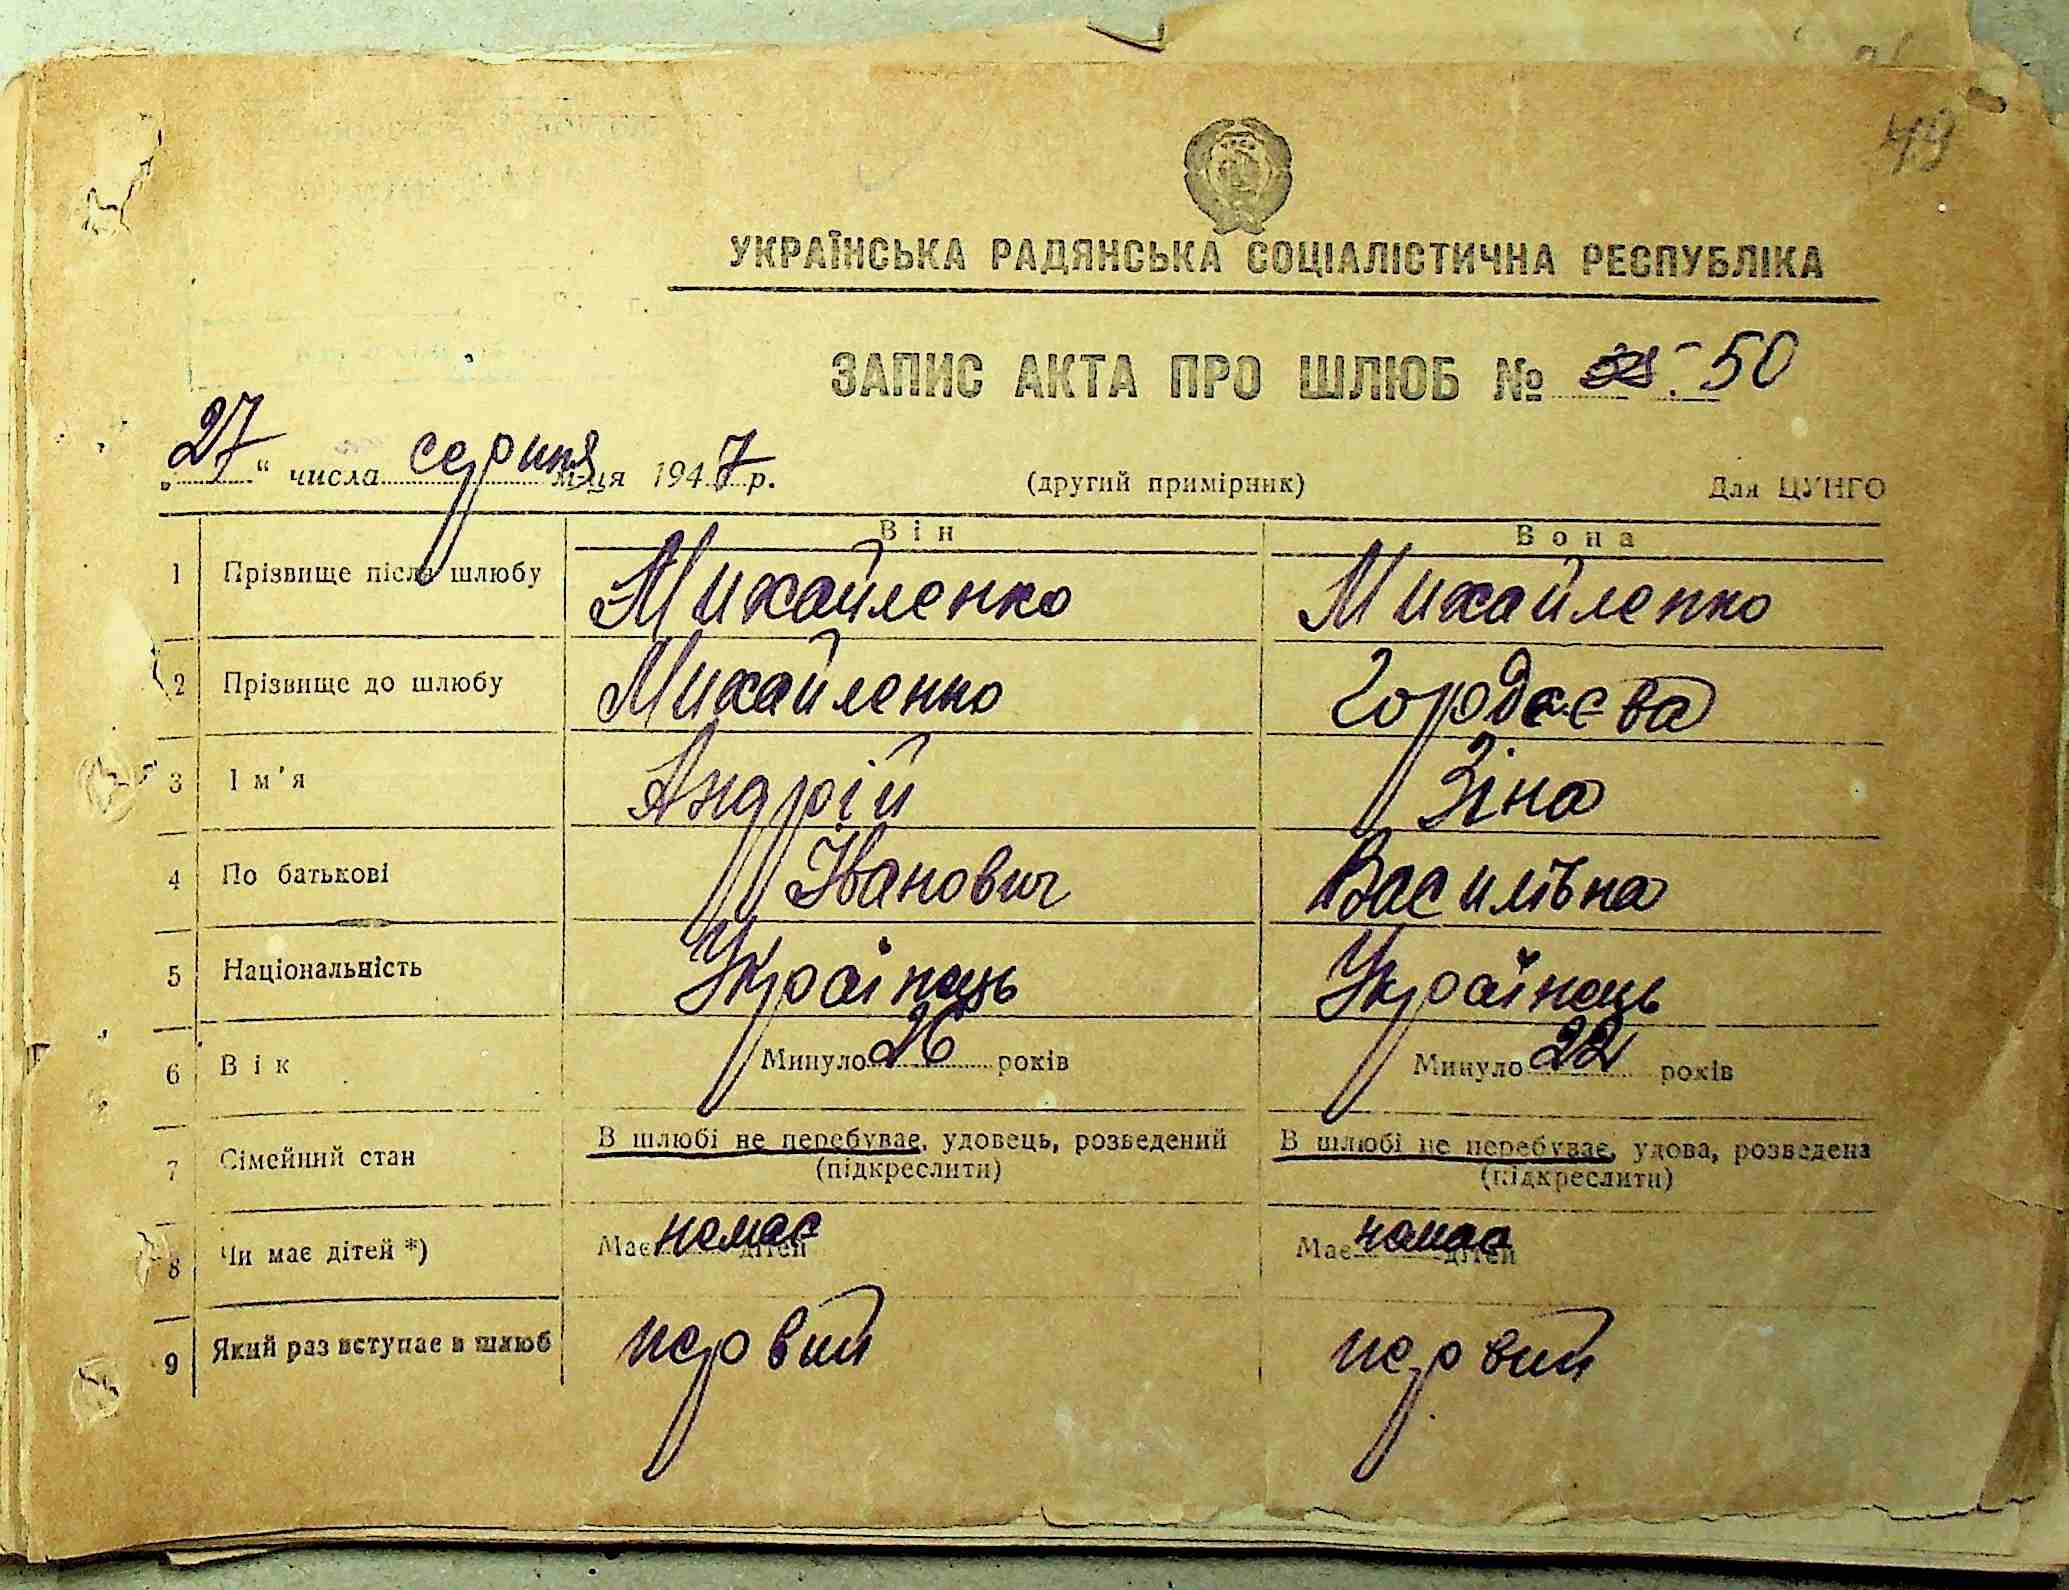 49
УКРАЇНСЬКА РАДЯНСЬКА СОЦІАЛІСТИЧНА РЕСПУБЛІКА
ЗАПИС АКТА ПРО ШЛЮБ № 50
„27“ числа серпня м-ця 1947 р. (другий примірник) Для ЦУНГО
Він Вона
1 Прізвище після шлюбу Михайленко Михайленко
2 Прізвище до шлюбу Михайленко Гордєєва
3 Ім'я Андрій Зіна
4 По батькові Іванович Василівна
5 Національність Українець Українець
6 Вік Минуло 26 років Минуло 22 років
7 Сімейний стан В шлюбі не перебуває, удовець, розведений В шлюбі не перебуває, удова, розведена
(підкреслити) (підкреслити)
8 Чи має дітей *) Має немає дітей Має немає дітей
9 Який раз вступає в шлюб первий первий